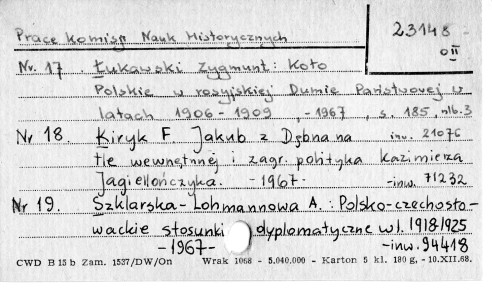 Prace Komisji Nauk Historycznych
23148
OII
Nr. 17 . Łukawski Zygmunt: Koło
Polskie w rosyjskiej Dumie Państwowej w
latach 1906-1909 , -1967 , s. 185, nlb.3
Nr 18. Kiryk F Jakub z Dębna na inw. 21076
tle wewnętrznej i zagr. polityka Kazimierza
Jagiellończyka. -1967- -inw. 71232
Nr 19. Szklarska-Lohmannowa A.: Polsko-czechosło-
wackie stosunki dyplomatyczne w l. 1918-1925
-1967- -inw. 94418
CWD B 15 b Zam. 1537/DW/On Wrak 1068 - 5.040.000 - Karton 5 kl. 180 g, -10.XII.68.